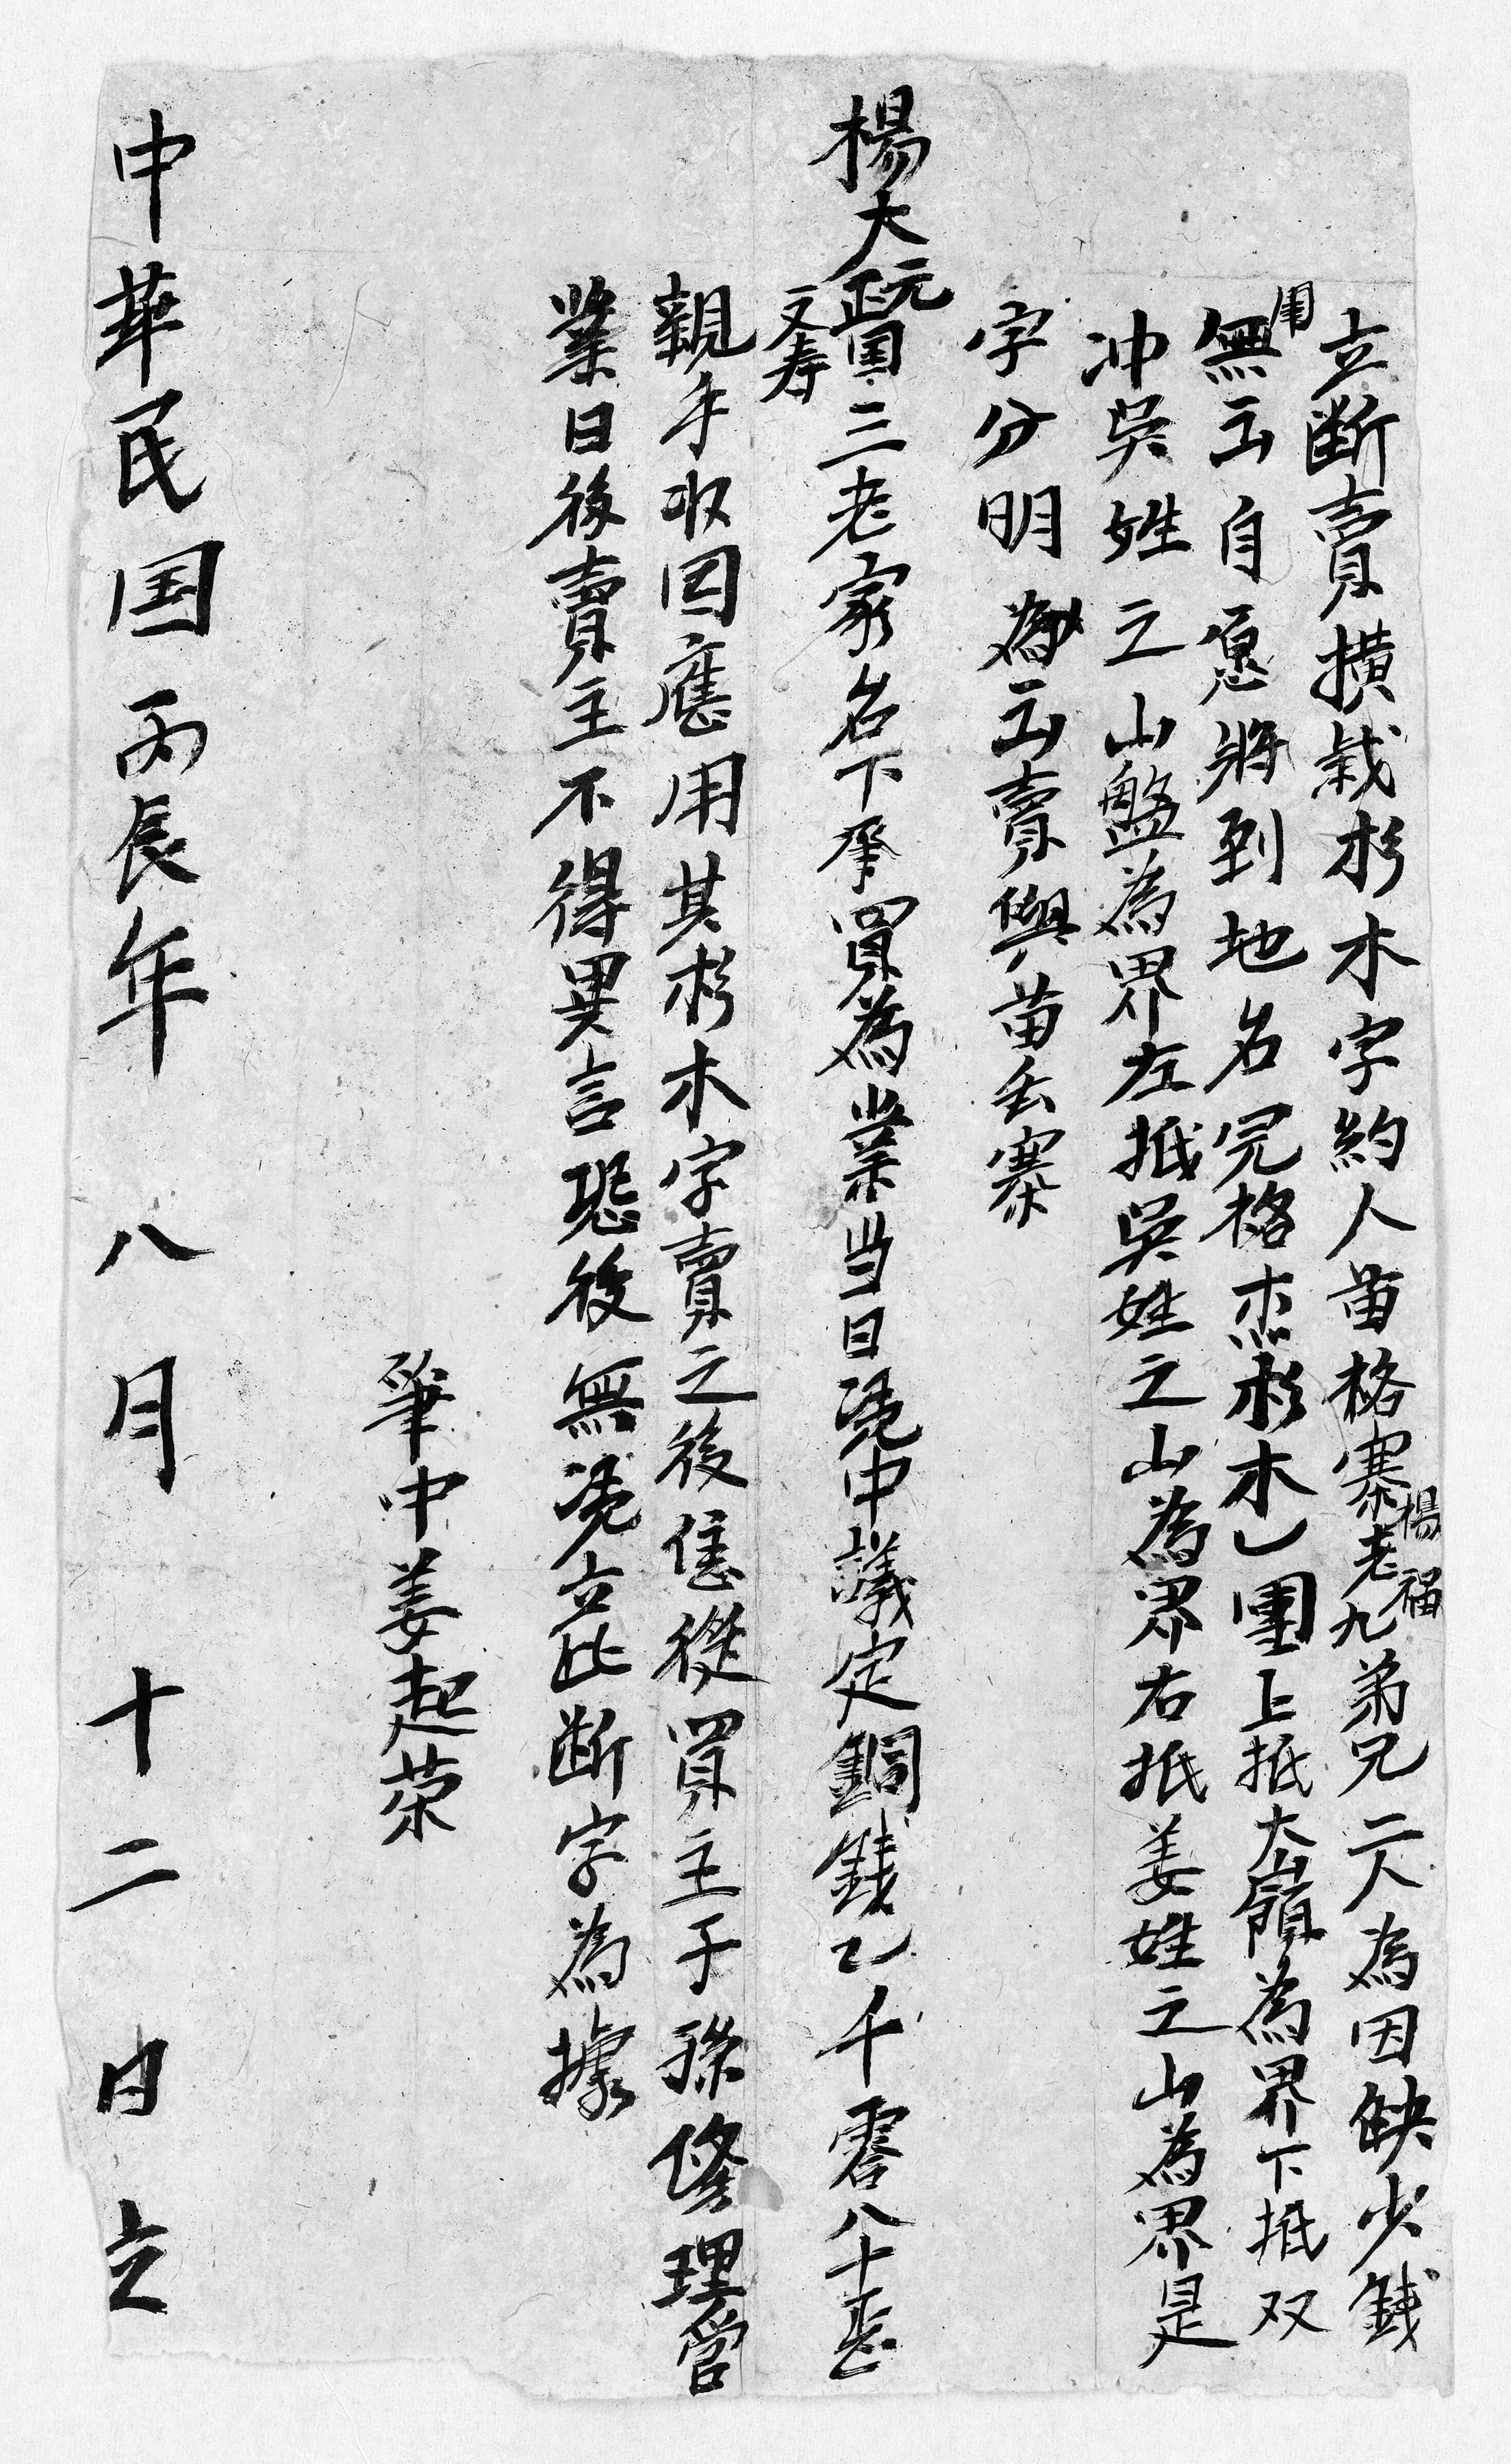 立断賣橫栽杉木字約人苗格寨楊老福九弟兄二人為因缺少錢
用無出自愿將到地名冗格杰杉木乙團上抵大嶺為界下抵双
冲吳姓之山盤為界左抵吳姓之山為界右抵姜姓之山為界是
字分明為出賣與苗丢寨
楊大元賢国三老家名下承買為業当日凴中議定銅錢乙千零八十
文寿
親手收回應用其杉木字賣之後恁從買主子孫修理営
業日後賣主不得異言恐後無凴立此断字為據
筆中姜起荣
中華民国丙辰年八月十二日立